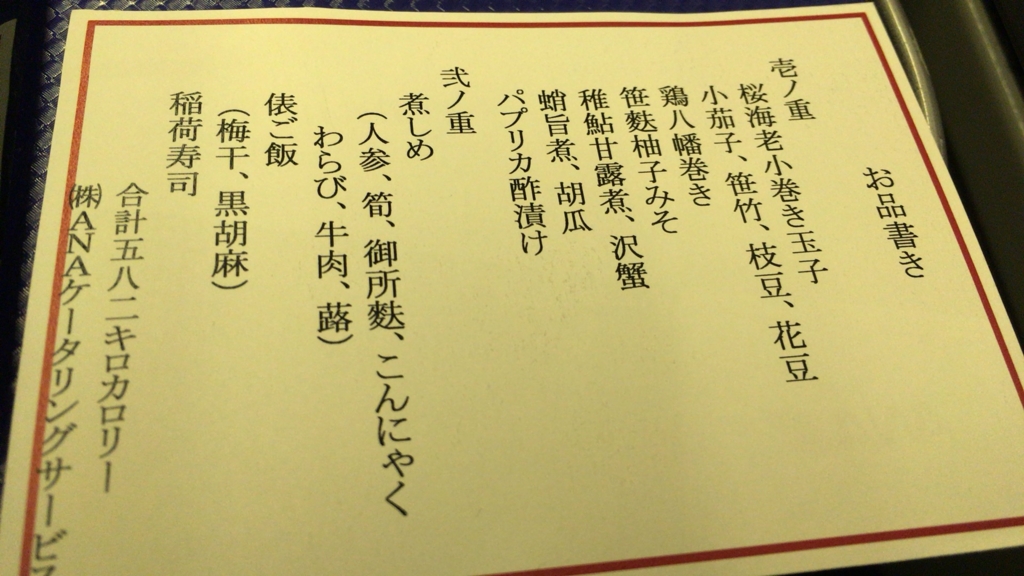 お品書き
壱ノ重
桜海老小巻き玉子
小茄子、笹竹、枝豆、花豆
鶏八幡巻き
笹麩柚子みそ
稚鮎甘露煮、沢蟹
蛸旨煮、胡瓜
パプリカ酢漬け
弐ノ重
煮しめ
（人参、筍、御所麩、こんにゃく
わらび、牛肉、蕗）
俵ご飯
（梅干、黒胡麻）
稲荷寿司
合計五八二キロカロリー
㈱ANAケータリングサービス